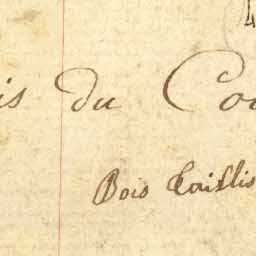 is du Co
Bois Taillis